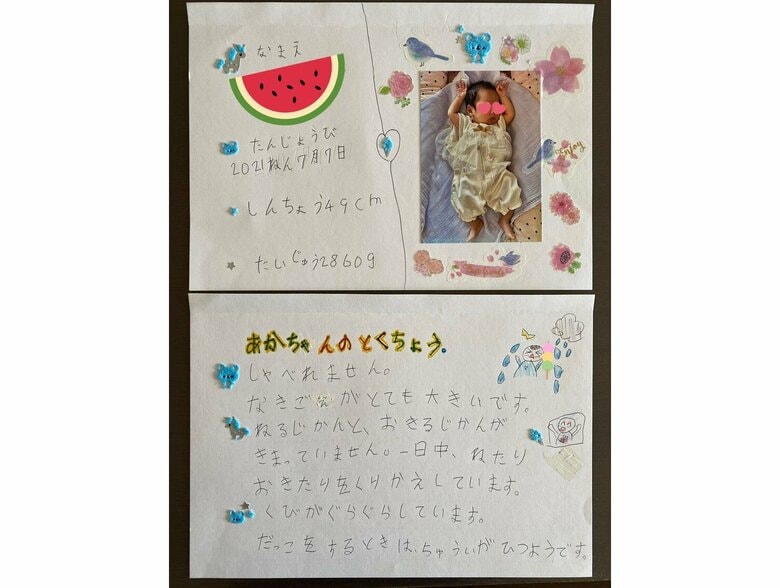 なまえ
たんじょうび
2021ねん7月7日
しんちょう49cm
たいじゅう2860g
Enjoy
あかちゃんのとくちょう。
しゃべれません。
なきごえがとても大きいです。
ねるじかんと、おきるじかんが
きまっていません。一日中、ねたり
おきたりをくりかえしています。
くびがぐらぐらしています。
だっこをするときは、ちゅういがひつようです。